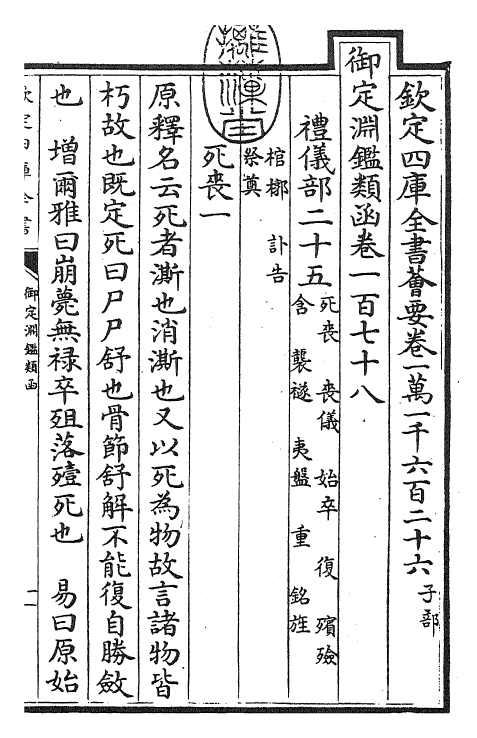 欽定四庫全書薈要卷一萬一千六百二十六 子部
御定淵鑑類函卷一百七十八
禮儀部二十五 死喪 喪儀 始卒 復 殯殮
含 襲襚 夷盤 重 銘旌
棺槨 訃告
祭奠
死喪一
原釋名云死者澌也消澌也又以死為物故言諸物皆
朽故也既定死曰尸尸舒也骨節舒解不能復自勝斂
也 增爾雅曰崩薨無禄卒殂落殪死也 易曰原始
欽定四庫全書
御定淵鑑類函